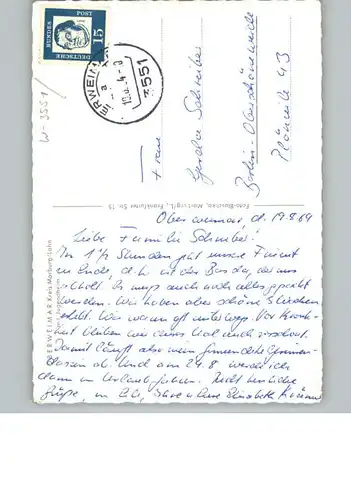 DEUTSCHE
BUNDES
POST
15
OBERWEIMAR
a
3551
W-3551
Frau
Gerda Schreiber
Berlin-Oberschöneweide
Plönzeile 43
Foto-Baumann, Marburg/L., Frankfurter Str. 15
OBERWEIMAR Kreis Marburg/Lahn
Oberweimar, d. 19.8.64
Liebe Familie Schreiber!
In 1 1/2 Stunden geht unsere Freizeit
zu Ende, d.h. ist der Bus da, der uns
abholt. Es muß auch noch alles gepackt
werden. Wir haben aber schöne 3 Wochen
erlebt. Wir waren oft unterwegs. Vor Krank-
heit blieben wir dieses Mal auch verschont.
Damit läuft also mein
ab. Und am 24.8 werde ich
dann in Urlaub fahren. Recht herzliche
Grüße, Ihre Elisabeth